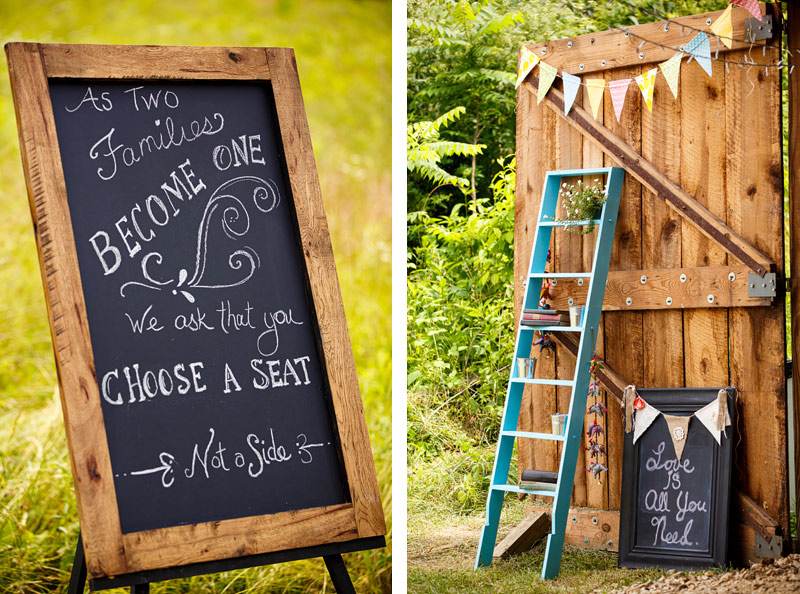 As Two
Families
BECOME ONE
We ask that you
CHOOSE A SEAT
Not a Side
Love
is
All You
Need.